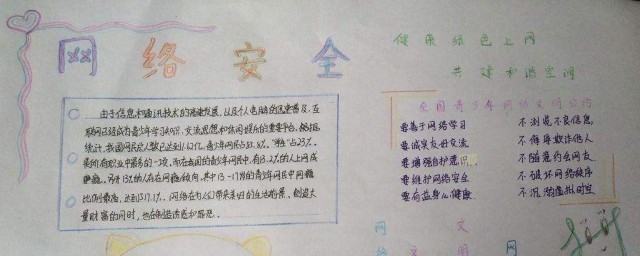 网络安全
健康绿色上网
共建和谐空间
由于信息和通讯技术的高速发展，以及个人电脑的迅速普及，互
联网已经成为青少年学习知识、交流思想和休闲娱乐的重要平台。据
统计，我国网民总人数已达到1.62亿，青少年网民
是所有职业中最多的一项，而在我国的青少年网民中，有13.2%的人上网成
瘾，另外13%的人存在网瘾倾向，其中13-17岁的青少年网民中网瘾
比例最高，达到17.1%。网络在为人们带来美好的生活前景、创造大
量财富的同时，也在制造诱惑和罪恶。
全国青少年网络文明公约
要善于网络学习 不浏览不良信息
要诚实友好交流 不侮辱欺诈他人
要增强自护意识 不随意约会网友
要维护网络安全 不破坏网络秩序
要有益身心健康 不沉溺虚拟时空
网 文
络 文 明 网